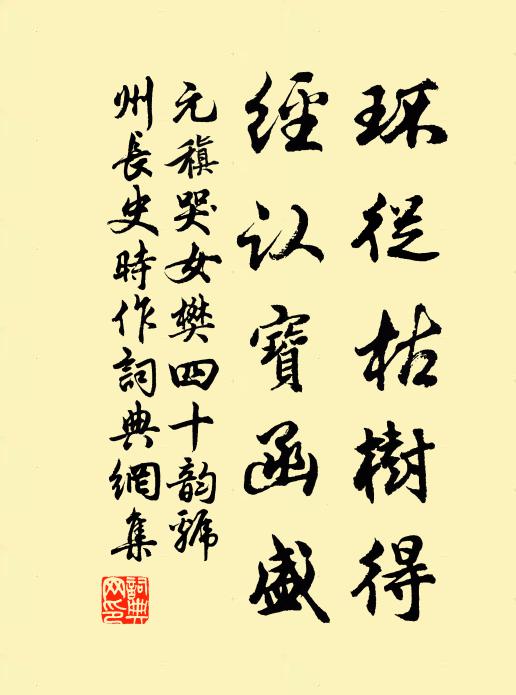 环從枯樹得
經认寶函盛
元稹哭女樊四十韵虢
州長史時作詞典網集
詞典網印